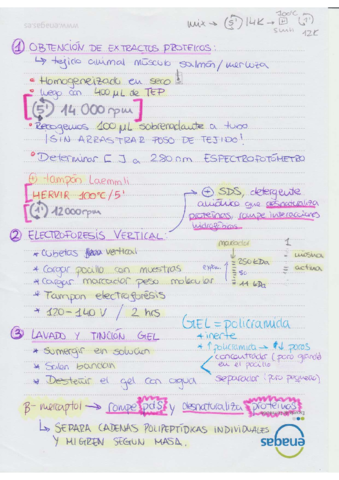 ① OBTENCIÓN DE EXTRACTOS PROTEICOS:
↳ tejido animal músculo salmón/merluza
• Homogeneizado en seco
• Luego con 400 µL de TEP
[(5') 14 000 rpm]
• Recogemos 100 µL sobrenadante a tubo
¡SIN ARRASTRAR POSO DE TEJIDO!
• Determinar [ ] a 280 nm ESPECTROFOTÓMETRO
⊕ tampón Laemmli
HERVIR 100ºC/5'
(1') 12000 rpm
→ ⊕ SDS, detergente
aniónico que desnaturaliza
proteínas, rompe interacciones
hidrofóbicas.
② ELECTROFORESIS VERTICAL:
* Cubetas vertical
* Cargar pocillo con muestras
* Cargar marcador peso molecular
* Tampon electroforesis
* 120-140 V / 2 hrs
marcador 1
250 kDa
miosina
50
actina
③ LAVADO Y TINCIÓN GEL
* Sumergir en solución
* Desteñir el gel con agua
GEL = policrilamida
* inerte
* ↑ policrilamida → ↑↓ poros
concentrador (poro grande)
en el pocillo
separador (poro pequeño)
β-mercaptol → rompe pdS y desnaturaliza proteínas
↳ SEPARA CADENAS POLIPEPTÍDICAS INDIVIDUALES
Y MIGREN SEGÚN MASA.
enagas